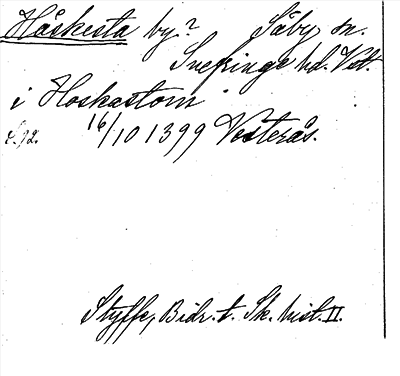 Håskesta by? Säby sn.
Snefringe hd. Vstl.
i Hoskastom
S. 72. 16/10 1399 Vesterås.
Styffe, Bidr. t. Sk. hist. II.